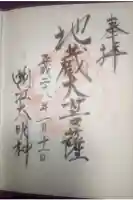 奉拝
地蔵大菩薩
平成二八年一月十一日
大明神